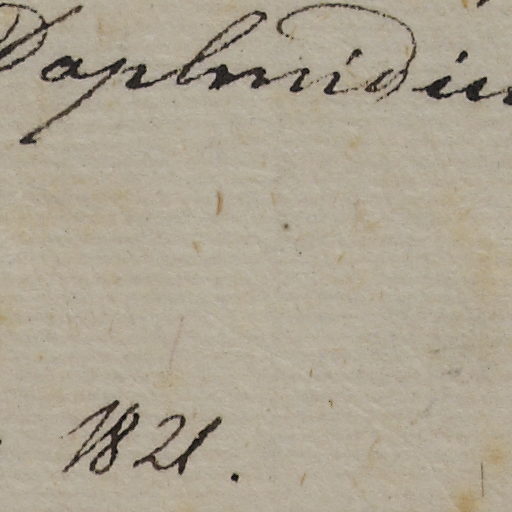 Daphnidiu
1821.